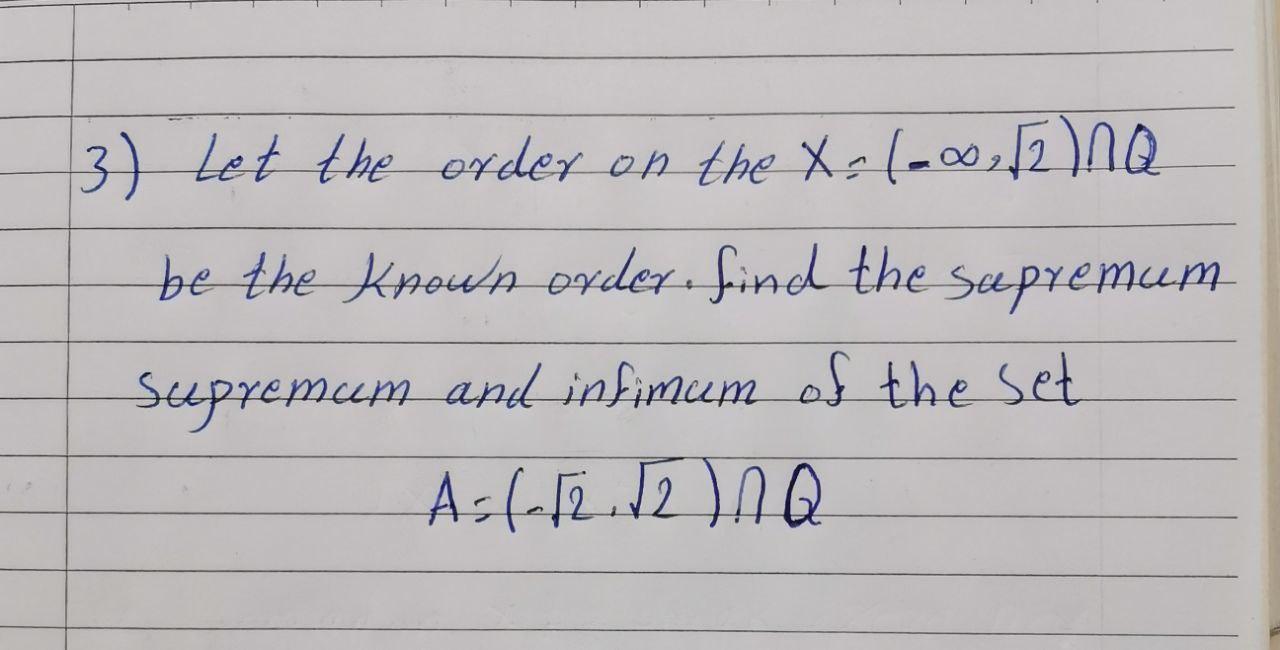 3) Let the order on the X=(-∞,√2)∩Q
be the known order. find the supremum
supremum and infimum of the set
A=(-√2,√2)∩Q